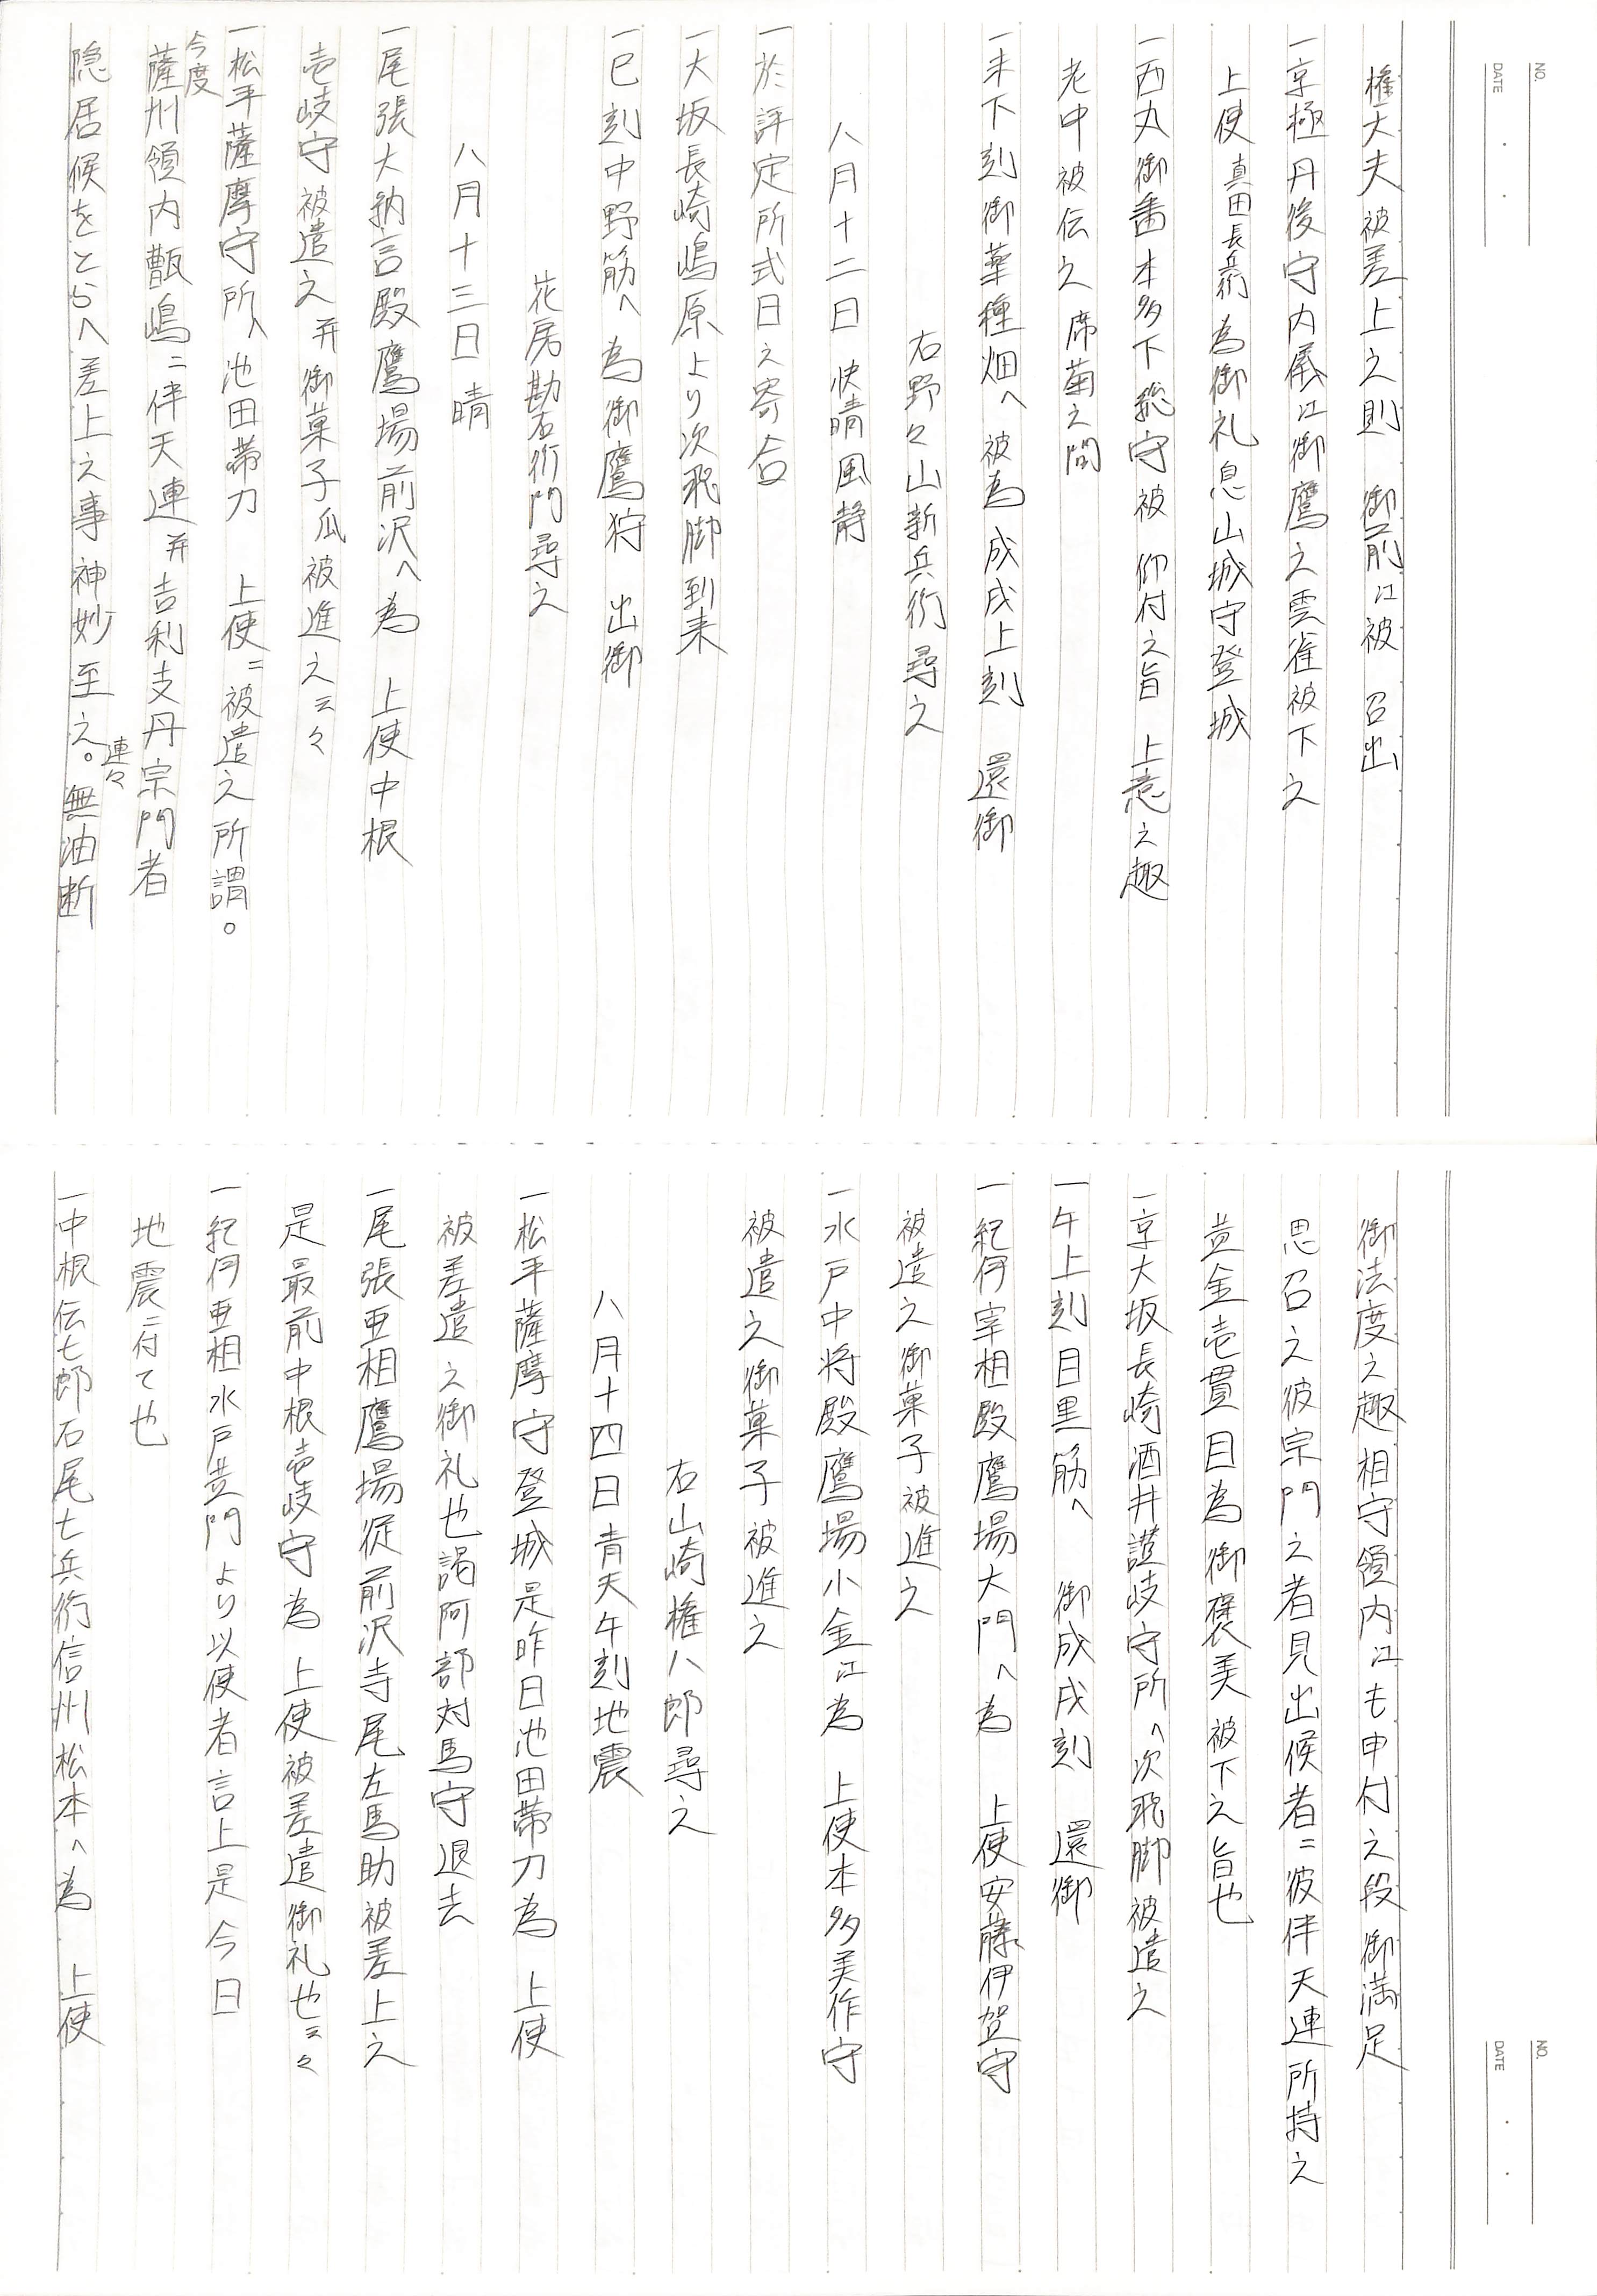 権大夫被差上之則　御前江被　召出
一京極丹後守内儀江御鷹之雲雀被下之
上使真田長兵衛為御礼息山城守登城
一西丸御番本多下総守被　仰付之旨　上意之趣
老中被伝之席菊之間
一未下刻御薬種畑へ　被為　成戌上刻　還御
右野々山新兵衛尋之
八月十二日　快晴風静
一於評定所式日之寄合
一大坂長崎嶋原より次飛脚到来
一巳刻中野筋へ為御鷹狩　出御
花房勘右衛門尋之
八月十三日　晴
一尾張大納言殿鷹場前沢へ為　上使中根
壱岐守被遣之并御菓子瓜被進之云々
一松平薩摩守所へ池田帯刀　上使ニ被遣之所謂。
今度
薩州領内甑嶋ニ伴天連并吉利支丹宗門者
隠居候をとらへ差上之事神妙至之。無油断
連々
御法度之趣相守領内江も申付之段御満足
思召之彼宗門之者見出候者ニ彼伴天連所持之
黄金壱貫目為御褒美被下之旨也
一京大坂長崎酒井讃岐守所へ次飛脚被遣之
一午上刻目黒筋へ　御成戌刻　還御
一紀伊宰相殿鷹場大門へ為　上使安藤伊賀守
被遣之御菓子被進之
一水戸中将殿鷹場小金江為　上使本多美作守
被遣之御菓子被進之
右山崎権八郎尋之
八月十四日青天午刻地震
一松平薩摩守登城是昨日池田帯刀為　上使
被差遣之御礼也謁阿部対馬守退去
一尾張亜相鷹場従前沢寺尾左馬助被差上之
是最前中根壱岐守為　上使被差遣御礼也云々
一紀伊亜相水戸黄門より以使者言上是今日
地震ニ付て也
一中根伝七郎石尾七兵衛信州松本へ為　上使
NO.
DATE
NO.
DATE